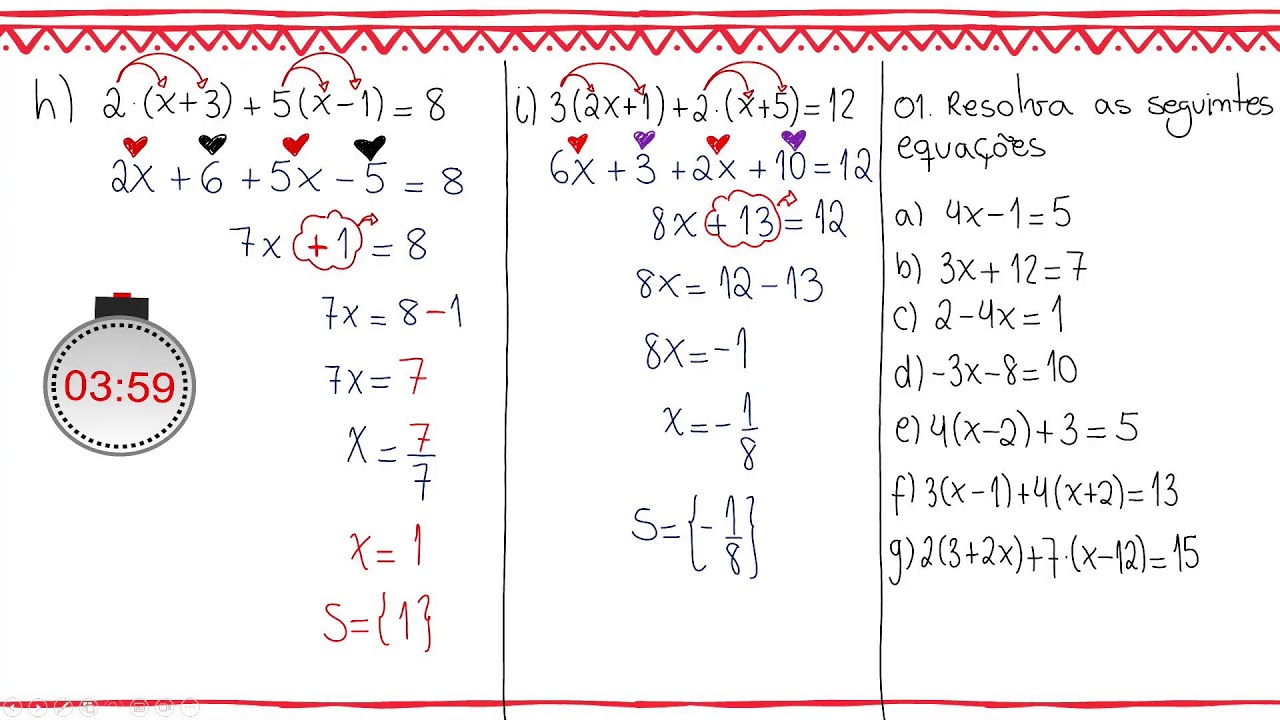 h) 2·(x+3) + 5(x-1) = 8
2x + 6 + 5x - 5 = 8
7x + 1 = 8
7x = 8 - 1
7x = 7
x = 7/7
x = 1
S = {1}
03:59
i) 3(2x+1) + 2·(x+5) = 12
6x + 3 + 2x + 10 = 12
8x + 13 = 12
8x = 12 - 13
8x = -1
x = -1/8
S = {-1/8}
01. Resolva as seguintes
equações
a) 4x-1=5
b) 3x+12=7
c) 2-4x=1
d) -3x-8=10
e) 4(x-2)+3=5
f) 3(x-1)+4(x+2)=13
g) 2(3+2x)+7·(x-12)=15